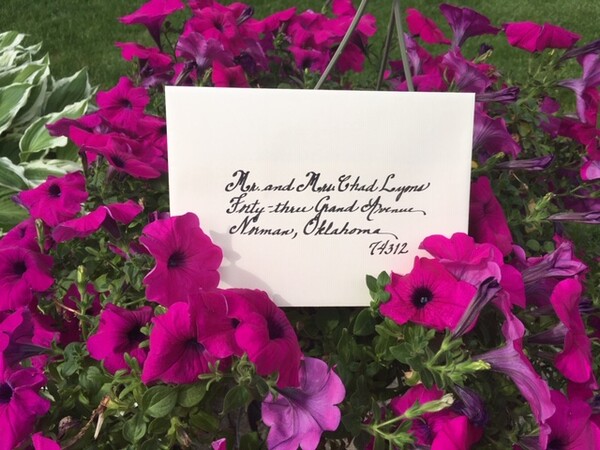 Mr. and Mrs. Chad Lyons
Forty-three Grand Avenue
Norman, Oklahoma
74312